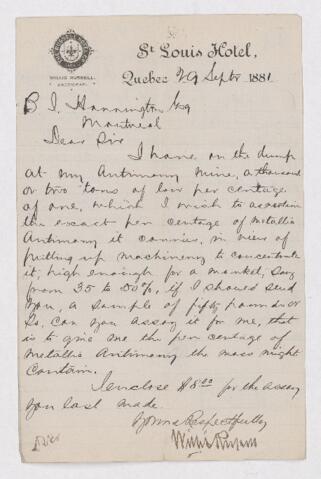 WILLIS RUSSELL,
St Louis Hotel,
Quebec 29 Septr 1881
B J. Harrington Esq
Montreal
Dear Sir
I have on the dump
at my Antimony Mine, a thousand
or two tons of low per centage
of ore, which I wish to ascertain
the exact per centage of Metallic
Antimony it carries, in view of
putting up machinery to concentrate
it, high enough for a market, say
from 35 to 50%, if I should send
you, a sample of fifty pounds or
so, can you assay it for me, that
is to give me the per centage of
Metallic Antimony the mass might
contain.
I enclose $8.00 for the assay
you last made.
Yours Respectfully
Willis Russell